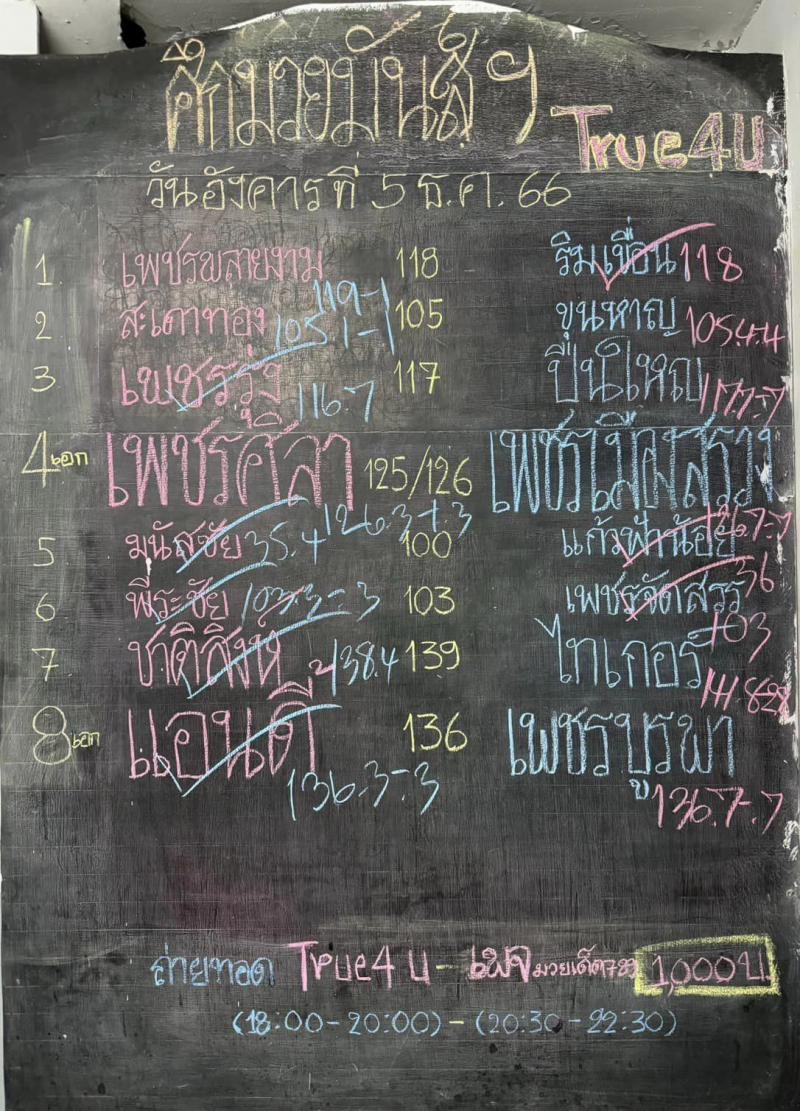 ศึกมวยมันส์ฯ
True4U
วันอังคารที่ 5 ธ.ค. 66
1. เพชรพลายงาม 118 ริมเขื่อน 118
119-1
2 สะเดาทอง 105.1-1 105 ขุนหาญ 105.4-4
3 เพชรรุ่ง 116.7 117 ปืนใหญ่ 117.7-7
4 เอก เพชรศิลา 125/126 เพชรเมืองสรวง
126.3-1.3 126.7-.7
5 มนัสชัย 35.4 100 แก้วฟ้าน้อย 36
6 พีระชัย 103.3-.3 103 เพชรจัดสรร 103
7 ชาติสิงห์ 138.4 139 ไทเกอร์ 141.8-2.8
8 เอก แอนดี้ 136 เพชรบูรพา
136.3-.3 136.7-.7
ถ่ายทอด True4U - เพจ มวยเด็ด789 1,000บ
(18:00-20:00)-(20:30-22:30)